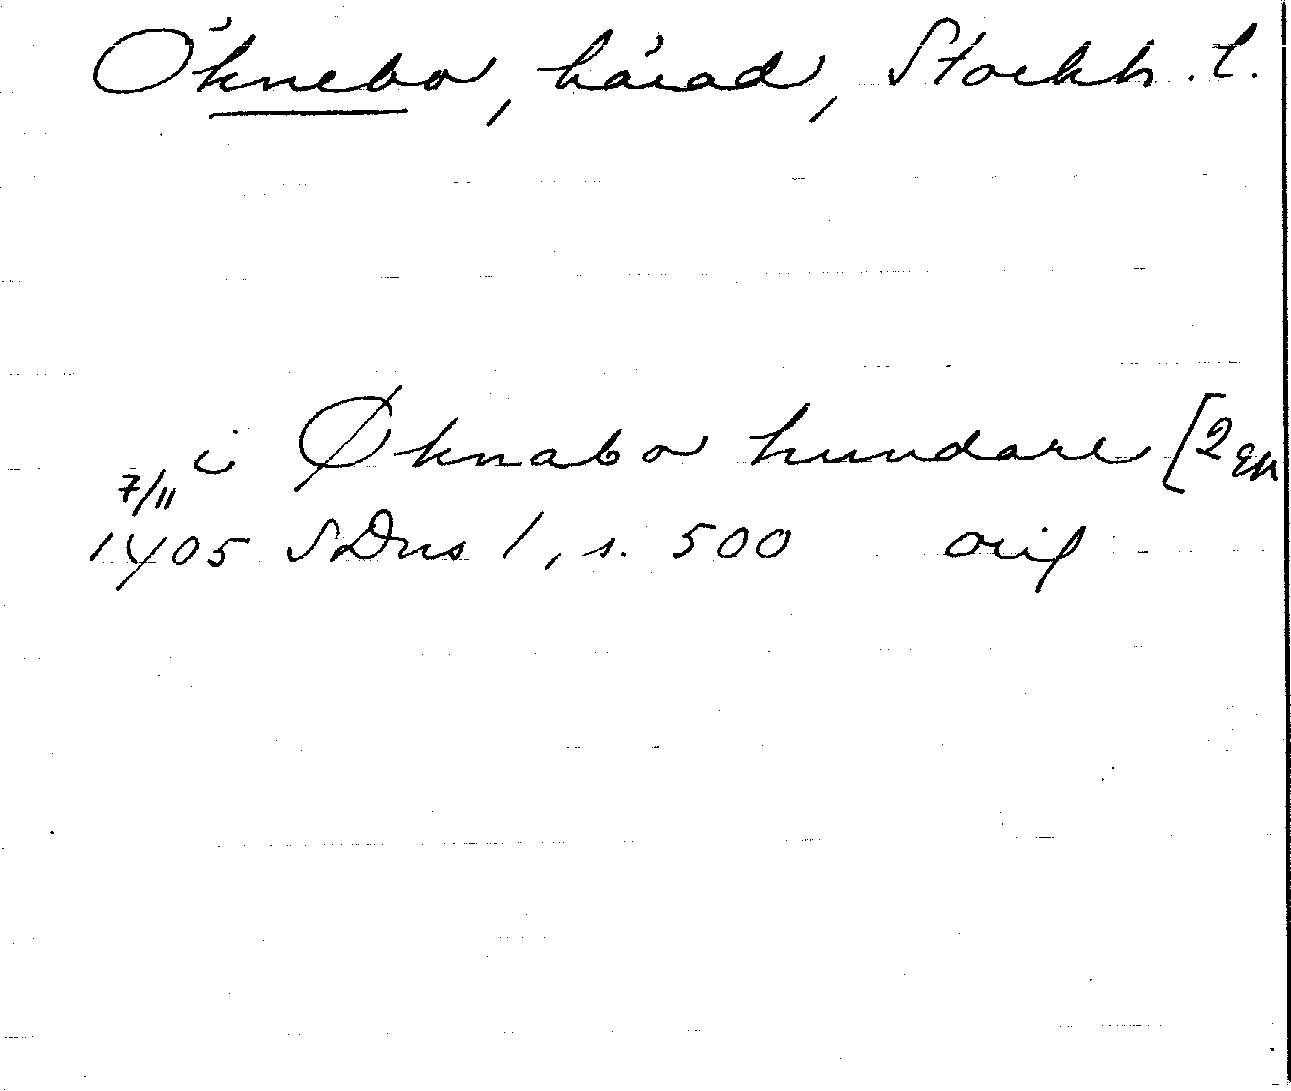 Öknebo, härad, Stockh. l.
i Øknabo hundare [2 ggr
7/11
1405 SDns 1, s. 500 orig